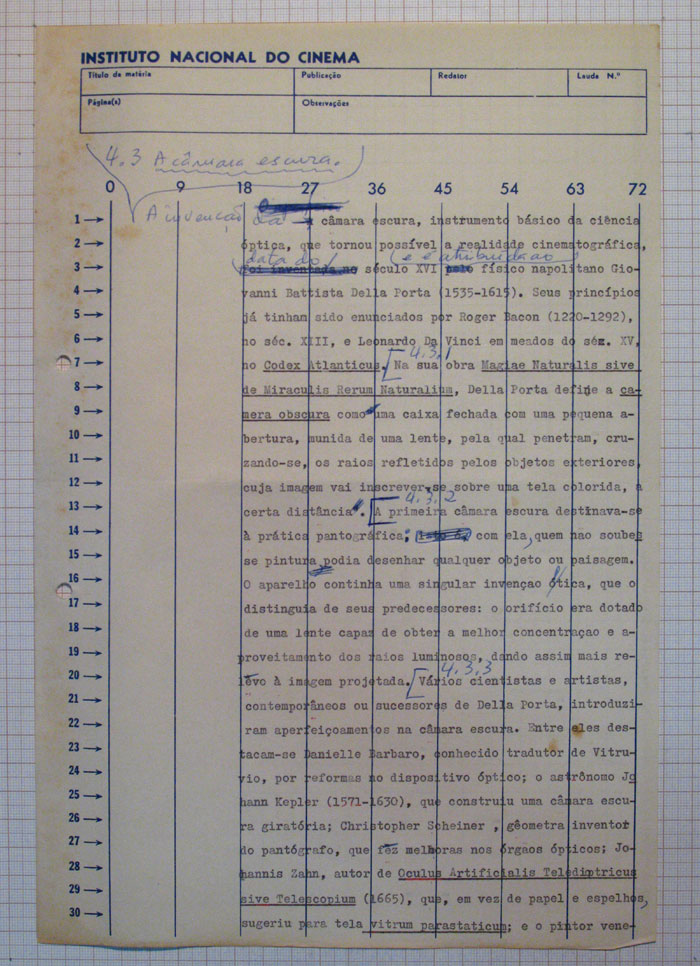 INSTITUTO NACIONAL DO CINEMA
Título da matéria Publicação Redator Lauda N.º
Página(s) Observações
4.3 A câmara escura.
0 9 18 27 36 45 54 63 72
1 A invenção da câmara escura, instrumento básico da ciência
2 óptica, que tornou possível a realidade cinematográfica,
data do e é atribuída ao
3 foi inventada no século XVI pelo físico napolitano Gio-
4 vanni Battista Della Porta (1535-1615). Seus princípios
5 já tinham sido enunciados por Roger Bacon (1220-1292),
6 no séc. XIII, e Leonardo Da Vinci em meados do séc. XV,
4.3.1
7 no Codex Atlanticus. Na sua obra Magiae Naturalis sive
8 de Miraculis Rerum Naturalium, Della Porta define a ca-
9 mera obscura como uma caixa fechada com uma pequena a-
10 bertura, munida de uma lente, pela qual penetram, cru-
11 zando-se, os raios refletidos pelos objetos exteriores,
12 cuja imagem vai inscrever-se sobre uma tela colorida, a
4.3.2
13 certa distância. A primeira câmara escura destinava-se
14 à prática pantográfica; com ela, quem nao soubes
15 se pintura podia desenhar qualquer objeto ou paisagem.
16 O aparelho continha uma singular invençao ótica, que o
17 distinguia de seus predecessores: o orifício era dotado
18 de uma lente capaz de obter a melhor concentraçao e a-
19 proveitamento dos raios luminosos, dando assim mais re-
4.3.3
20 lêvo à imagem projetada. Vários cientistas e artistas,
21 contemporâneos ou sucessores de Della Porta, introduzi
22 ram aperfeiçoamentos na câmara escura. Entre eles des-
23 tacam-se Danielle Barbaro, conhecido tradutor de Vitru-
24 vio, por reformas no dispositivo óptico; o astrônomo Jo
25 hann Kepler (1571-1630), que construiu uma câmara escu-
26 ra giratória; Christopher Scheiner , gêometra inventor
27 do pantógrafo, que fêz melhoras nos órgaos ópticos; Jo-
28 hannis Zahn, autor de Oculus Artificialis Teledioptricus
29 sive Telescopium (1665), que, em vez de papel e espelhos,
30 sugeriu para tela vitrum parastaticum; e o pintor vene-